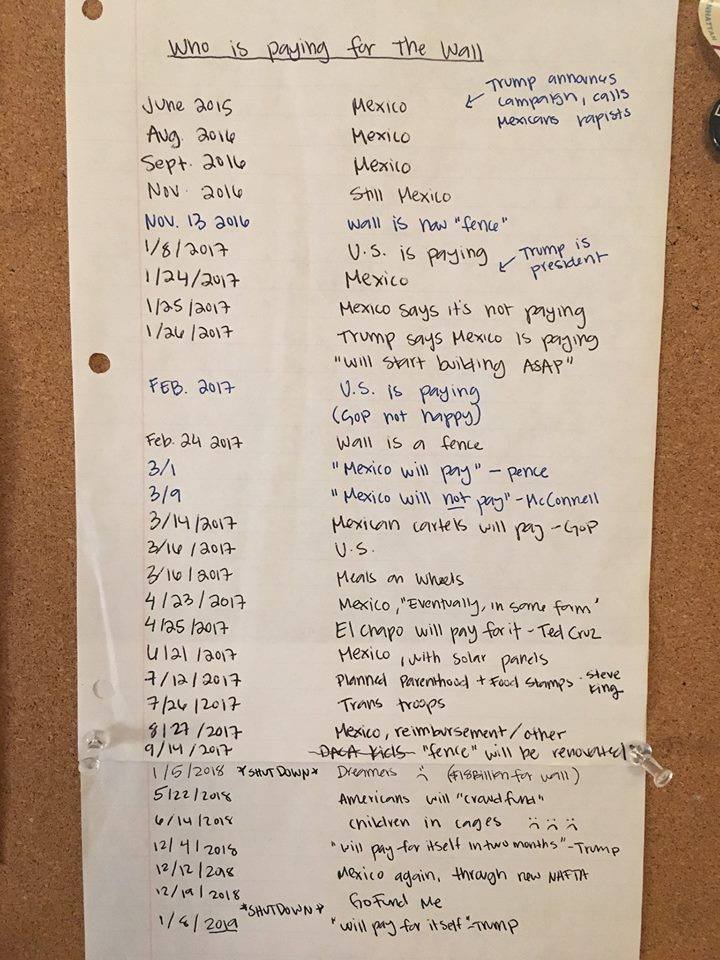 Who is paying for the Wall
June 2015 Mexico ← Trump announces
campaign, calls
Mexicans rapists
Aug. 2016 Mexico
Sept. 2016 Mexico
Nov. 2016 Still Mexico
Nov. 13 2016 Wall is now "fence"
1/8/2017 U.S. is paying ← Trump is
president
1/24/2017 Mexico
1/25/2017 Mexico says it's not paying
1/26/2017 Trump says Mexico is paying
"will start building ASAP"
FEB. 2017 U.S. is paying
(GOP not happy)
Feb. 24 2017 Wall is a fence
3/1 "Mexico will pay" - pence
3/9 "Mexico will not pay" - McConnell
3/14/2017 Mexican cartels will pay - GOP
3/16/2017 U.S.
3/16/2017 Meals on Wheels
4/23/2017 Mexico, "Eventually, in some form"
4/25/2017 El Chapo will pay for it - Ted Cruz
6/21/2017 Mexico, with solar panels
7/12/2017 Planned Parenthood + Food Stamps - Steve
King
7/26/2017 Trans troops
8/27/2017 Mexico, reimbursement/other
9/14/2017 DACA Kids "fence" will be renovated"
1/5/2018 *SHUTDOWN* Dreamers :( ($18Billion for wall)
5/22/2018 Americans will "crowdfund"
6/14/2018 children in cages :( :( :(
12/4/2018 "will pay for itself in two months" - Trump
12/12/2018 Mexico again, through new NAFTA
12/19/2018 GoFund Me
*SHUTDOWN*
1/8/2019 "will pay for itself" - Trump